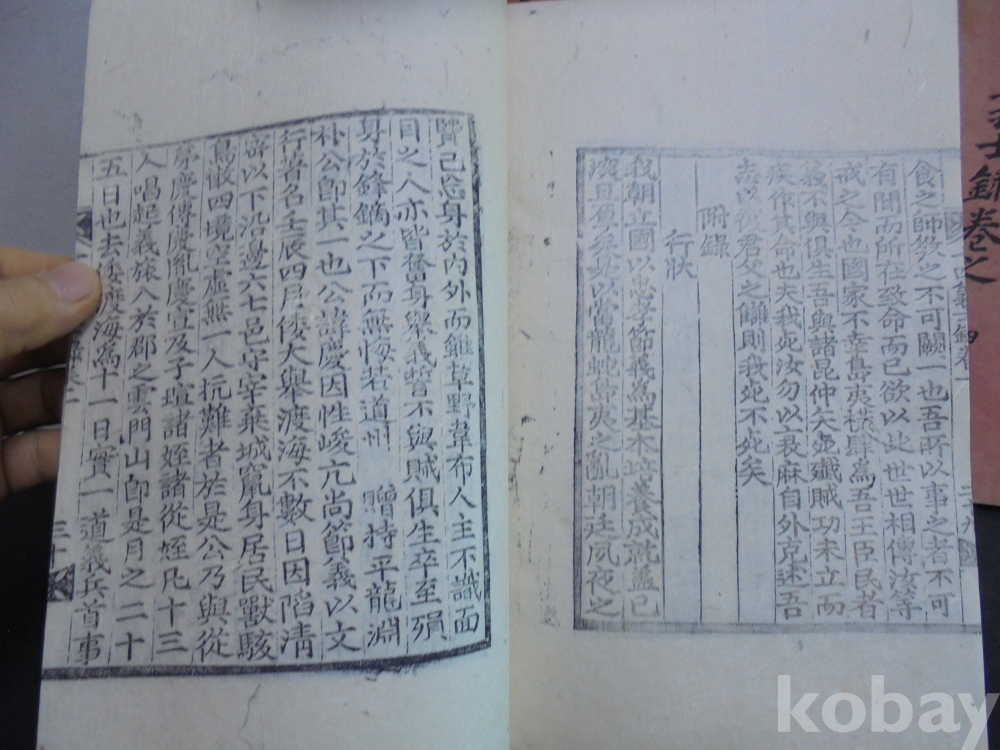 食之師敎之不可闕一也吾所以事之者不可
有間而所在致命而已欲以此世世相傳汝等
戒之今也國家不幸島夷橫肆爲吾王臣民者
義不與俱生吾與諸昆仲矢死殲賊功未立而
疾作其命也夫我死汝勿以衰麻自外克述吾
志以復君父之讎則我死不死矣
附錄
行狀
我朝立國以忠孝節義爲基本培養成就盖已
深且厚矣如以當龍蛇島夷之亂朝廷夙夜之
賢已忘身於內外而雖草野韋布人主不識面
目之人亦皆奮身擧義誓不與賊俱生卒至殞
身於鋒鏑之下而無悔若道州 贈持平龍淵
朴公卽其一也公諱慶因性峻亢尚節義以文
行著名壬辰四月倭大擧渡海不數日因陷淸
密以下沿邊六七邑守宰棄城竄身居民獸駭
鳥散四境空虛無一人抗難者於是公乃與從
弟慶傳慶胤慶宣及子瑄諸姪諸從姪凡十三
人唱起義旅入於郡之雲門山卽是月之二十
五日也去倭渡海爲十一日實一道義兵首事
三十
士錄卷之
kobay